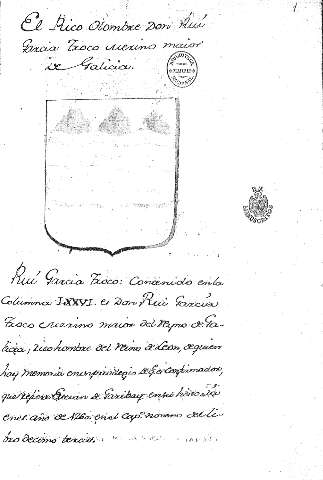 1
El Rico Hombre Don Rui
Garcia Troco Merino maior
de Galicia.
Rui Garcia Troco: Contenido en la
Columna LXXVI. es Don Rui Garcia
Troco Merino maior del Reyno de Ga-
licia, Rico hombre del Reino de Leon, de quien
hay memoria en un privilegio de es confirmador,
que refiere Estevan de Garibay en su historia
en el año de en el Cap. noveno del li-
bro decimo tercio